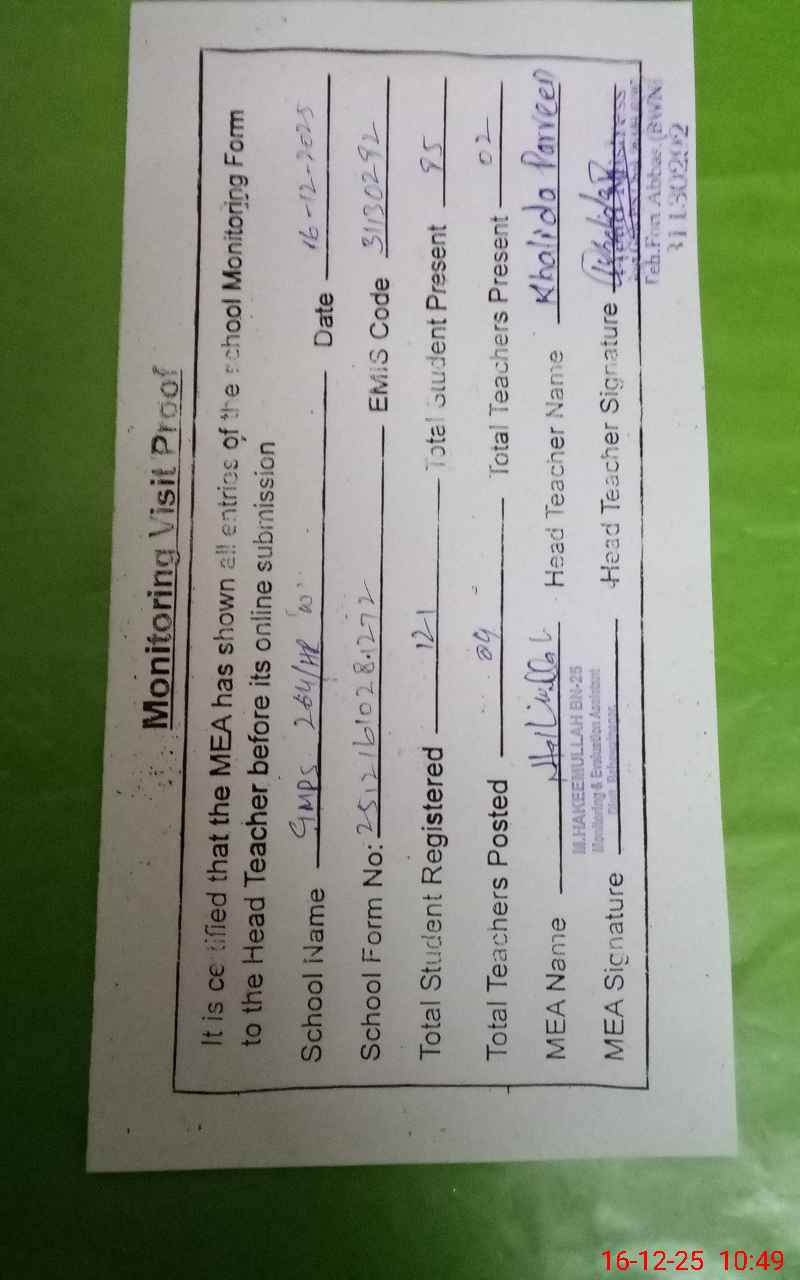 Monitoring Visit Proof
It is certified that the MEA has shown all entries of the school Monitoring Form
to the Head Teacher before its online submission
School Name GMPS 264/HR 'W' Date 16-12-2025
School Form No: 25121610281272 EMIS Code 31130292
Total Student Registered 121 Total Student Present 95
Total Teachers Posted 04 Total Teachers Present 02
MEA Name Head Teacher Name Khalida Parveen
M.HAKEEMULLAH BN-25
Monitoring & Evaluation Assistant
MEA Signature Head Teacher Signature
Teh.Fort Abbas (BWN)
31130292
16-12-25 10:49